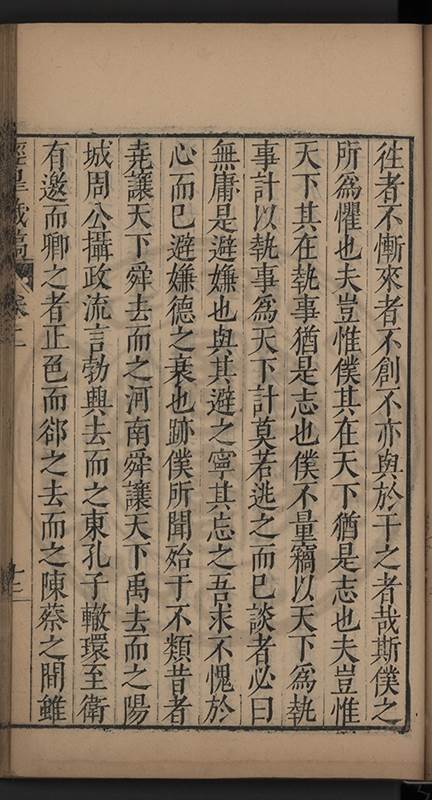 徃者不慚來者不創不亦與於干之者哉斯僕之
所爲懼也夫豈惟僕其在天下猶是志也夫豈惟
天下其在執事猶是志也僕不量竊以天下爲執
事計以執事爲天下計莫若逃之而已談者必曰
無庸是避嫌也與其避之寧其忘之吾求不愧於
心而已避嫌德之衰也跡僕所聞始于不類昔者
堯讓天下舜去而之河南舜讓天下禹去而之陽
城周公攝政流言勃興去而之東孔子轍環至衛
有邀而卿之者正色而郤之去而之陳蔡之間雖
涇臯藏稿 卷二 十二